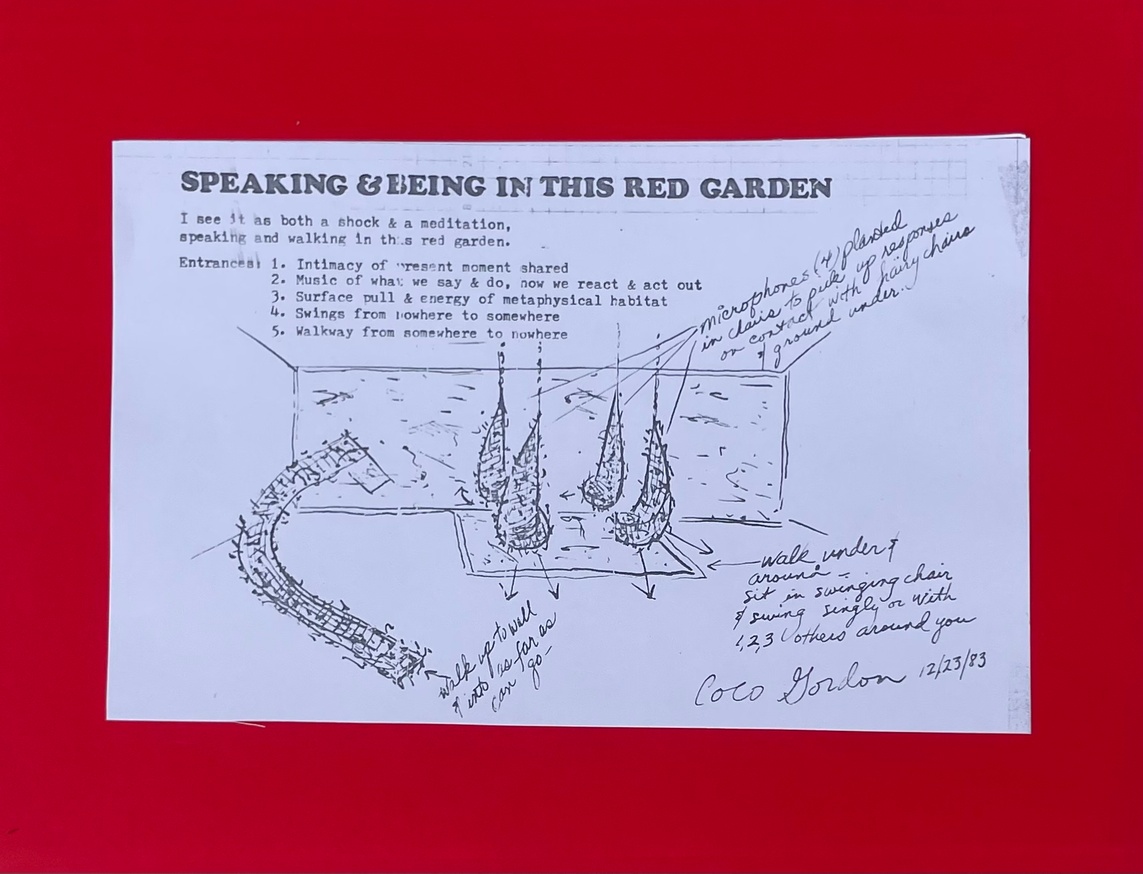 SPEAKING & BEING IN THIS RED GARDEN
I see it as both a shock & a meditation,
speaking and walking in this red garden.
Entrances: 1. Intimacy of present moment shared
2. Music of what we say & do, now we react & act out
3. Surface pull & energy of metaphysical habitat
4. Swings from nowhere to somewhere
5. Walkway from somewhere to nowhere
microphones (4) planted
in chairs to pick up responses
on contact with hairy chairs
& ground under.
walk under &
around –
sit in swinging chair
& swing singly or with
1,2,3 others around you
walk up to wall
& into as far as
can go –
Coco Gordon 12/23/83